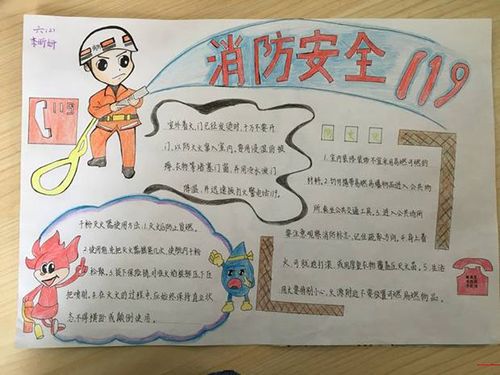 六(2)
李昕妍
消防安全119
119
室外着火门已经发烫时,千万不要开
门,以防大火窜入室内。要用浸湿的被
褥、衣物等堵塞门窗,并用泼水
降温,并迅速拨打火警电话119。
干粉灭火器使用方法:1.灭火时防止复燃。
2.使用前先把灭火器颠倒几次,使筒内干粉
松散。3.拔下保险销,对准火焰根部压下压
把喷射。4.在灭火的过程中,应始终保持直立状
态,不得横卧或颠倒使用。
1.室内装修装饰不宜采用易燃可燃的
材料。2.切勿携带易燃易爆物品进入公共场
所、乘坐公共交通工具。3.进入公共场所
要注意观察消防标志,记住疏散方向。4.身上着
火,可就地打滚,或用厚重衣物覆盖压灭火苗。5.生活
用火要特别小心,火源附近不要放置可燃易燃物品。